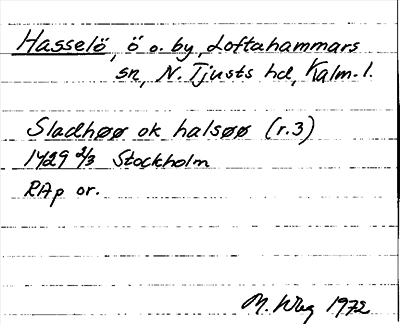 Hasselö, ö o. by, Loftahammars
sn, N. Tjusts hd, Kalm. l.
Sladhøø ok halsøø (r.3)
1429 2/3 Stockholm
RAp or.
M. Wbg 1972